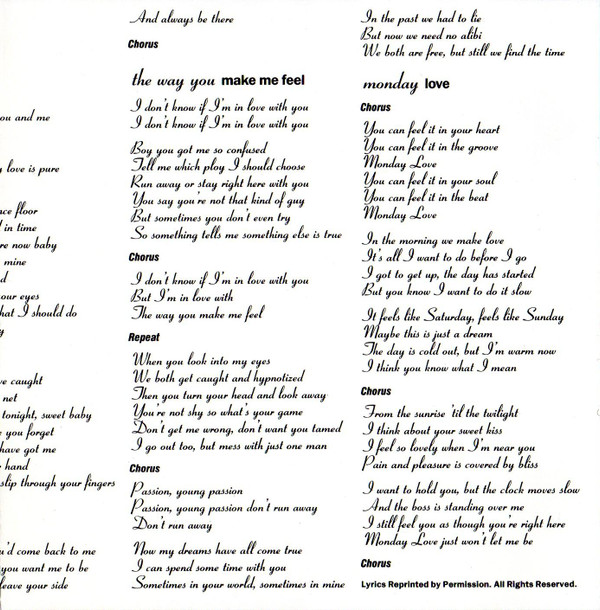 ou and me
love is pure
ce floor
in time
re now baby
mine
d
our eyes
hat I should do
y
e caught
net
tonight, sweet baby
you forget
have got me
hand
slip through your fingers
u'd come back to me
you want me to be
leave your side
And always be there
Chorus
the way you make me feel
I don't know if I'm in love with you
I don't know if I'm in love with you
Boy you got me so confused
Tell me which ploy I should choose
Run away or stay right here with you
You say you're not that kind of guy
But sometimes you don't even try
So something tells me something else is true
Chorus
I don't know if I'm in love with you
But I'm in love with
The way you make me feel
Repeat
When you look into my eyes
We both get caught and hypnotized
Then you turn your head and look away
You're not shy so what's your game
Don't get me wrong, don't want you tamed
I go out too, but mess with just one man
Chorus
Passion, young passion
Passion, young passion don't run away
Don't run away
Now my dreams have all come true
I can spend some time with you
Sometimes in your world, sometimes in mine
In the past we had to lie
But now we need no alibi
We both are free, but still we find the time
monday love
Chorus
You can feel it in your heart
You can feel it in the groove
Monday Love
You can feel it in your soul
You can feel it in the beat
Monday Love
In the morning we make love
It's all I want to do before I go
I got to get up, the day has started
But you know I want to do it slow
It feels like Saturday, feels like Sunday
Maybe this is just a dream
The day is cold out, but I'm warm now
I think you know what I mean
Chorus
From the sunrise 'til the twilight
I think about your sweet kiss
I feel so lovely when I'm near you
Pain and pleasure is covered by bliss
I want to hold you, but the clock moves slow
And the boss is standing over me
I still feel you as though you're right here
Monday Love just won't let me be
Chorus
Lyrics Reprinted by Permission. All Rights Reserved.